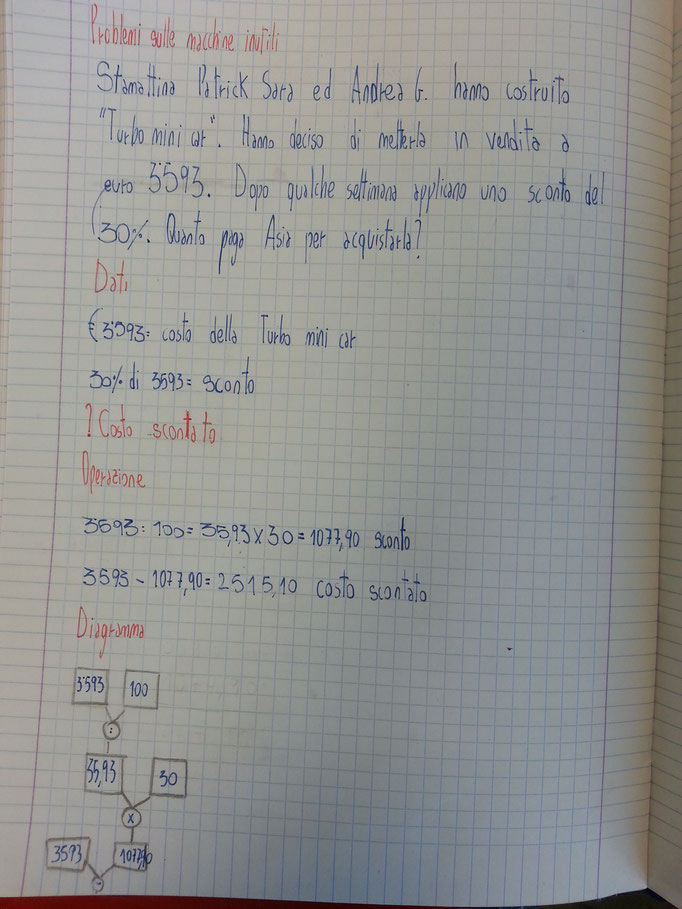 Problemi sulle macchine inutili
Stamattina Patrick Sara ed Andrea G. hanno costruito
"Turbo mini car". Hanno deciso di metterla in vendita a
euro 3593. Dopo qualche settimana applicano uno sconto del
30%. Quanto paga Asia per acquistarla?
Dati
€ 3593= costo della Turbo mini car
30% di 3593= sconto
? Costo scontato
Operazione
3593: 100= 35,93 x 30 = 1077,90 sconto
3593 - 1077,90= 2515,10 costo scontato
Diagramma
3593 100
:
35,93 30
x
3593 1077,90
-